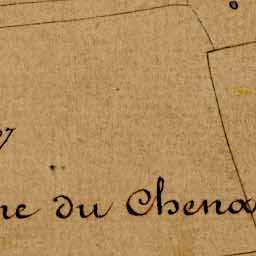 ne du Chena